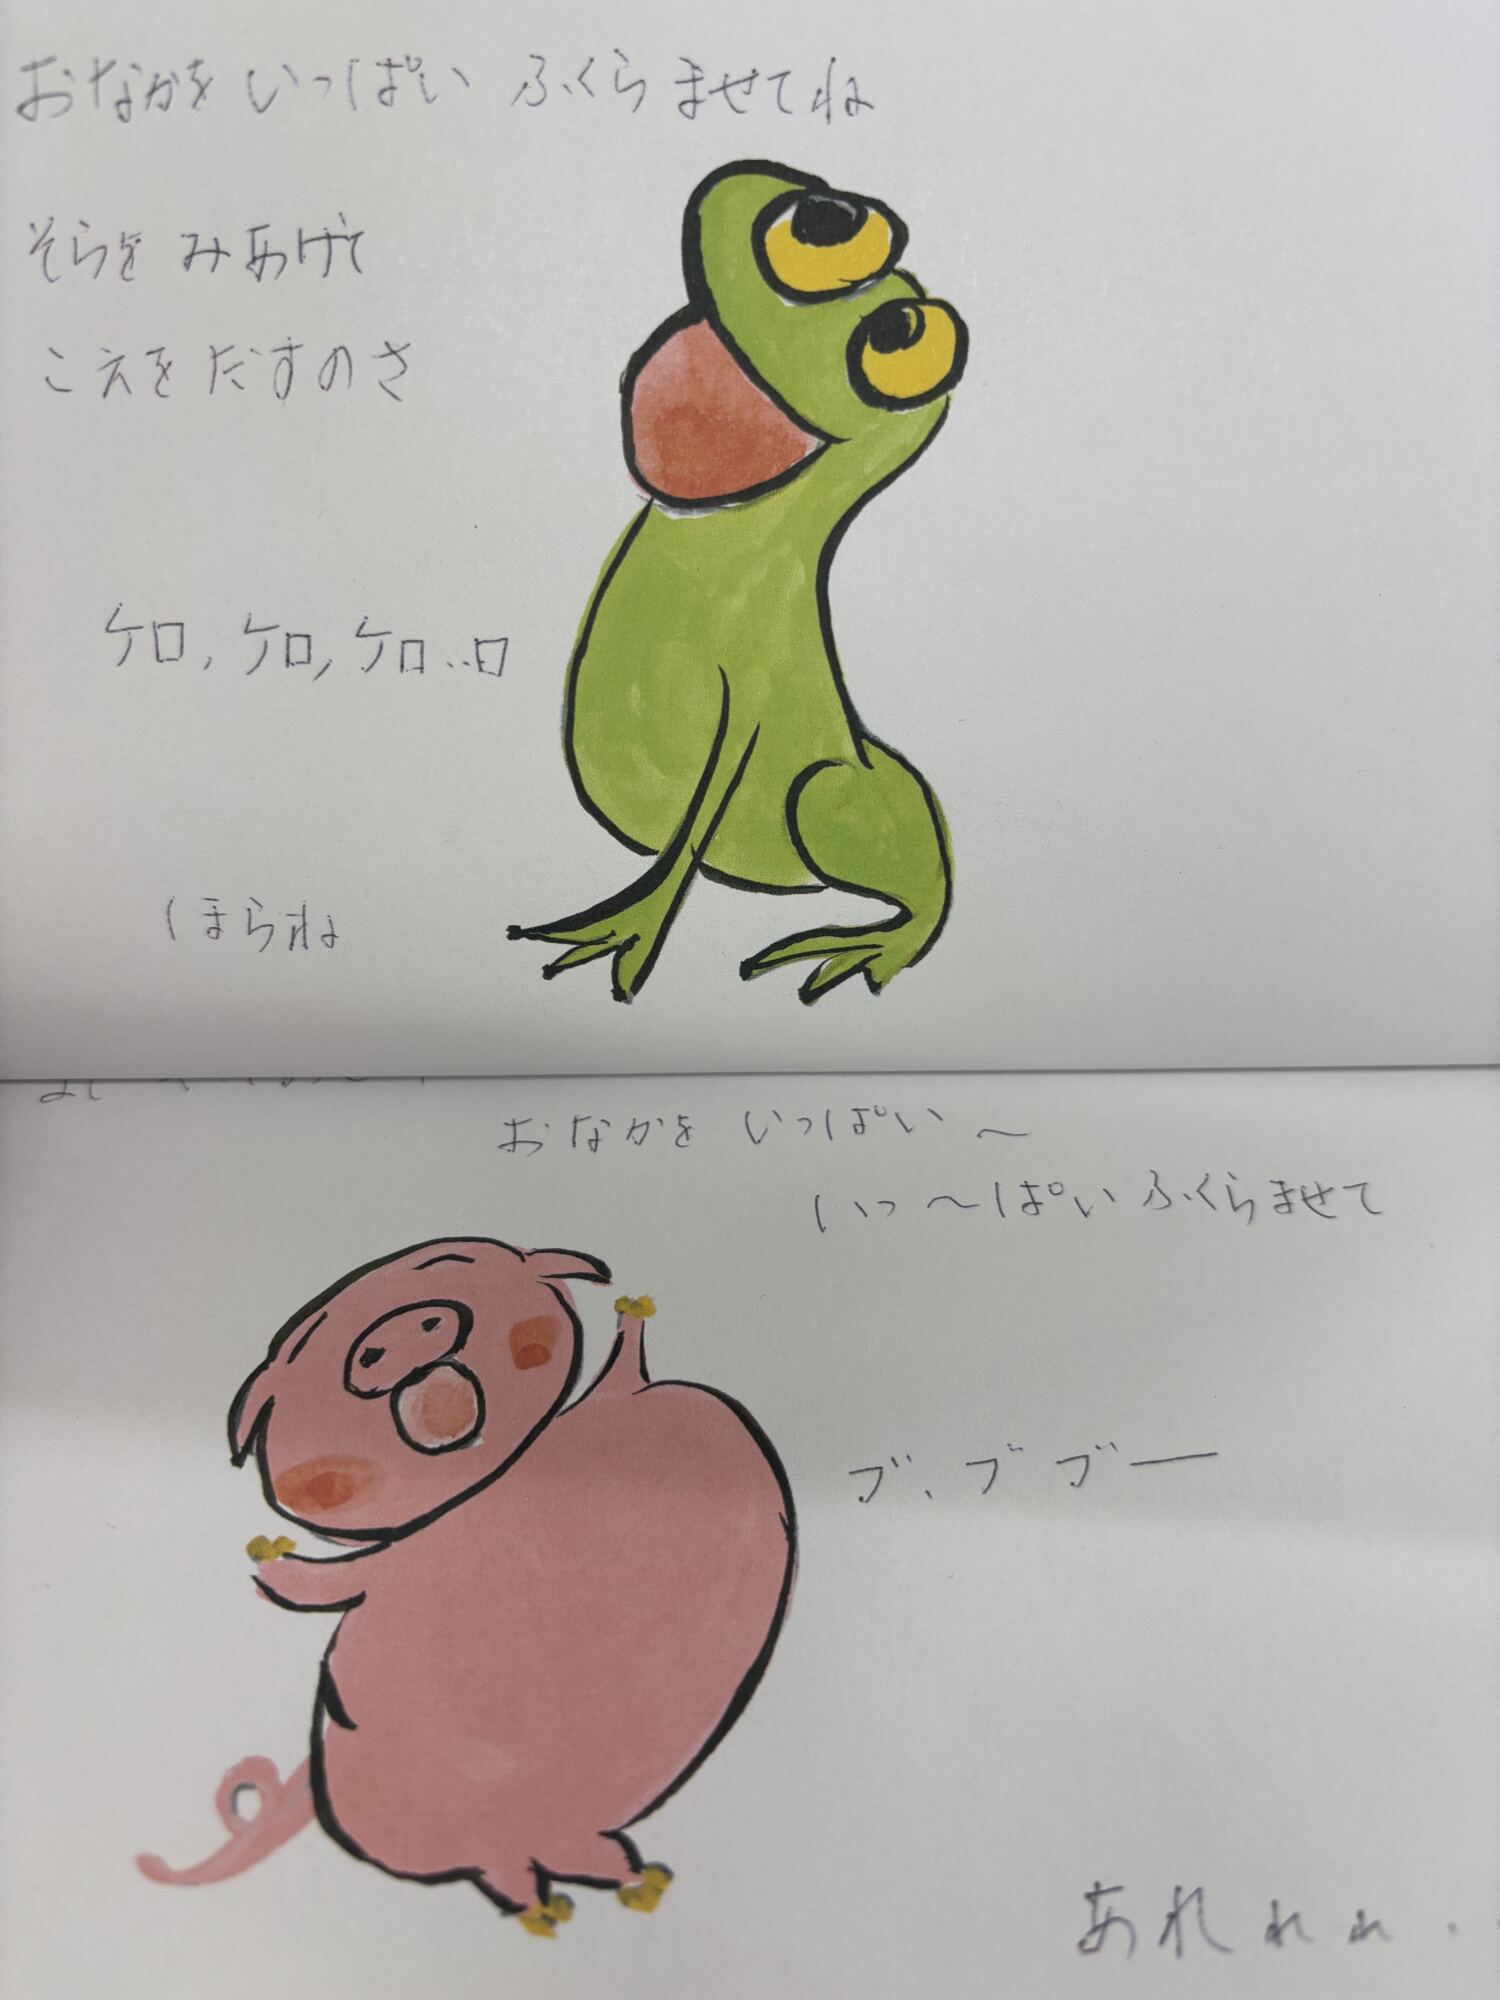 おなかを いっぱい ふくらませてね
そらを みあげて
こえを だすのさ
ケロ, ケロ, ケロ..ロ
ほらね
おなかを いっぱい〜
いっ〜ぱい ふくらませて
ブ、ブ ブー
あれれれ・